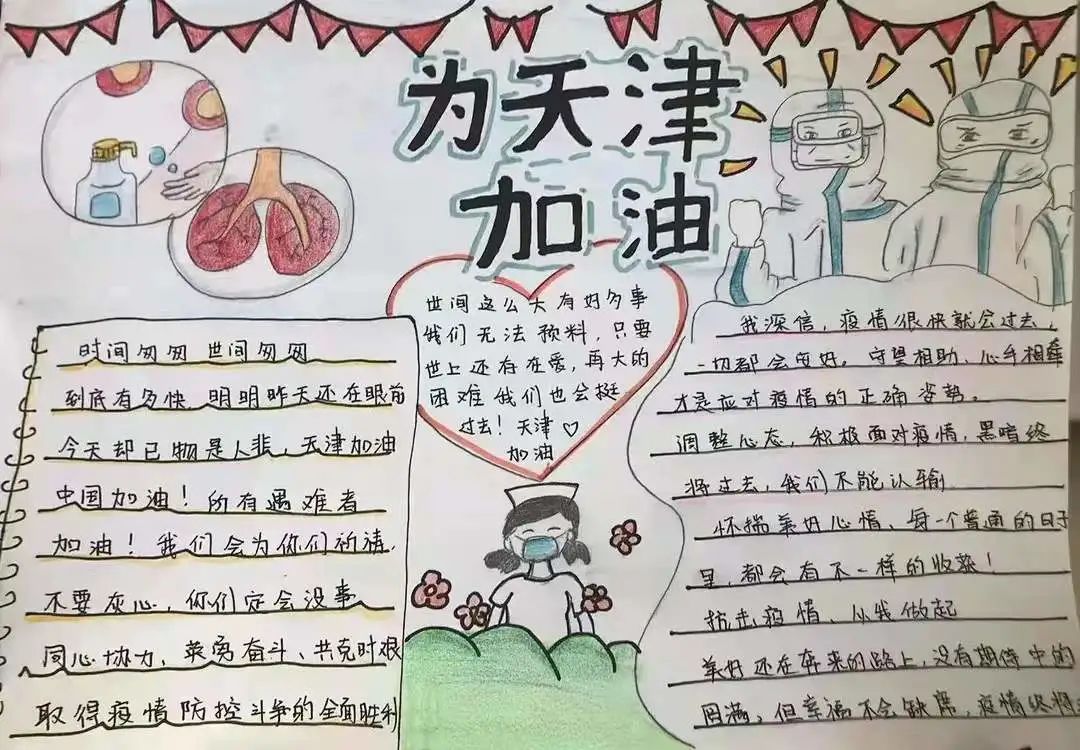 为天津
加油
时间匆匆世间匆匆
到底有多快，明明昨天还在眼前
今天却已物是人非，天津加油
中国加油！所有遇难者
加油！我们会为你们祈祷，
不要灰心，你们定会没事
同心协力、英勇奋斗、共克时艰
取得疫情防控斗争的全面胜利
世间这么大有好多事
我们无法预料，只要
世上还存在爱，再大的
困难我们也会挺
过去！天津♡
加油
我深信，疫情很快就会过去，
一切都会安好。守望相助、心手相牵
才是应对疫情的正确姿势。
调整心态，积极面对疫情，黑暗终
将过去，我们不能认输
怀揣美好心情，每一个普通的日子
里，都会有不一样的收获！
抗击疫情，从我做起
美好还在奔来的路上，没有期待中的
圆满，但幸福不会缺席，疫情终将